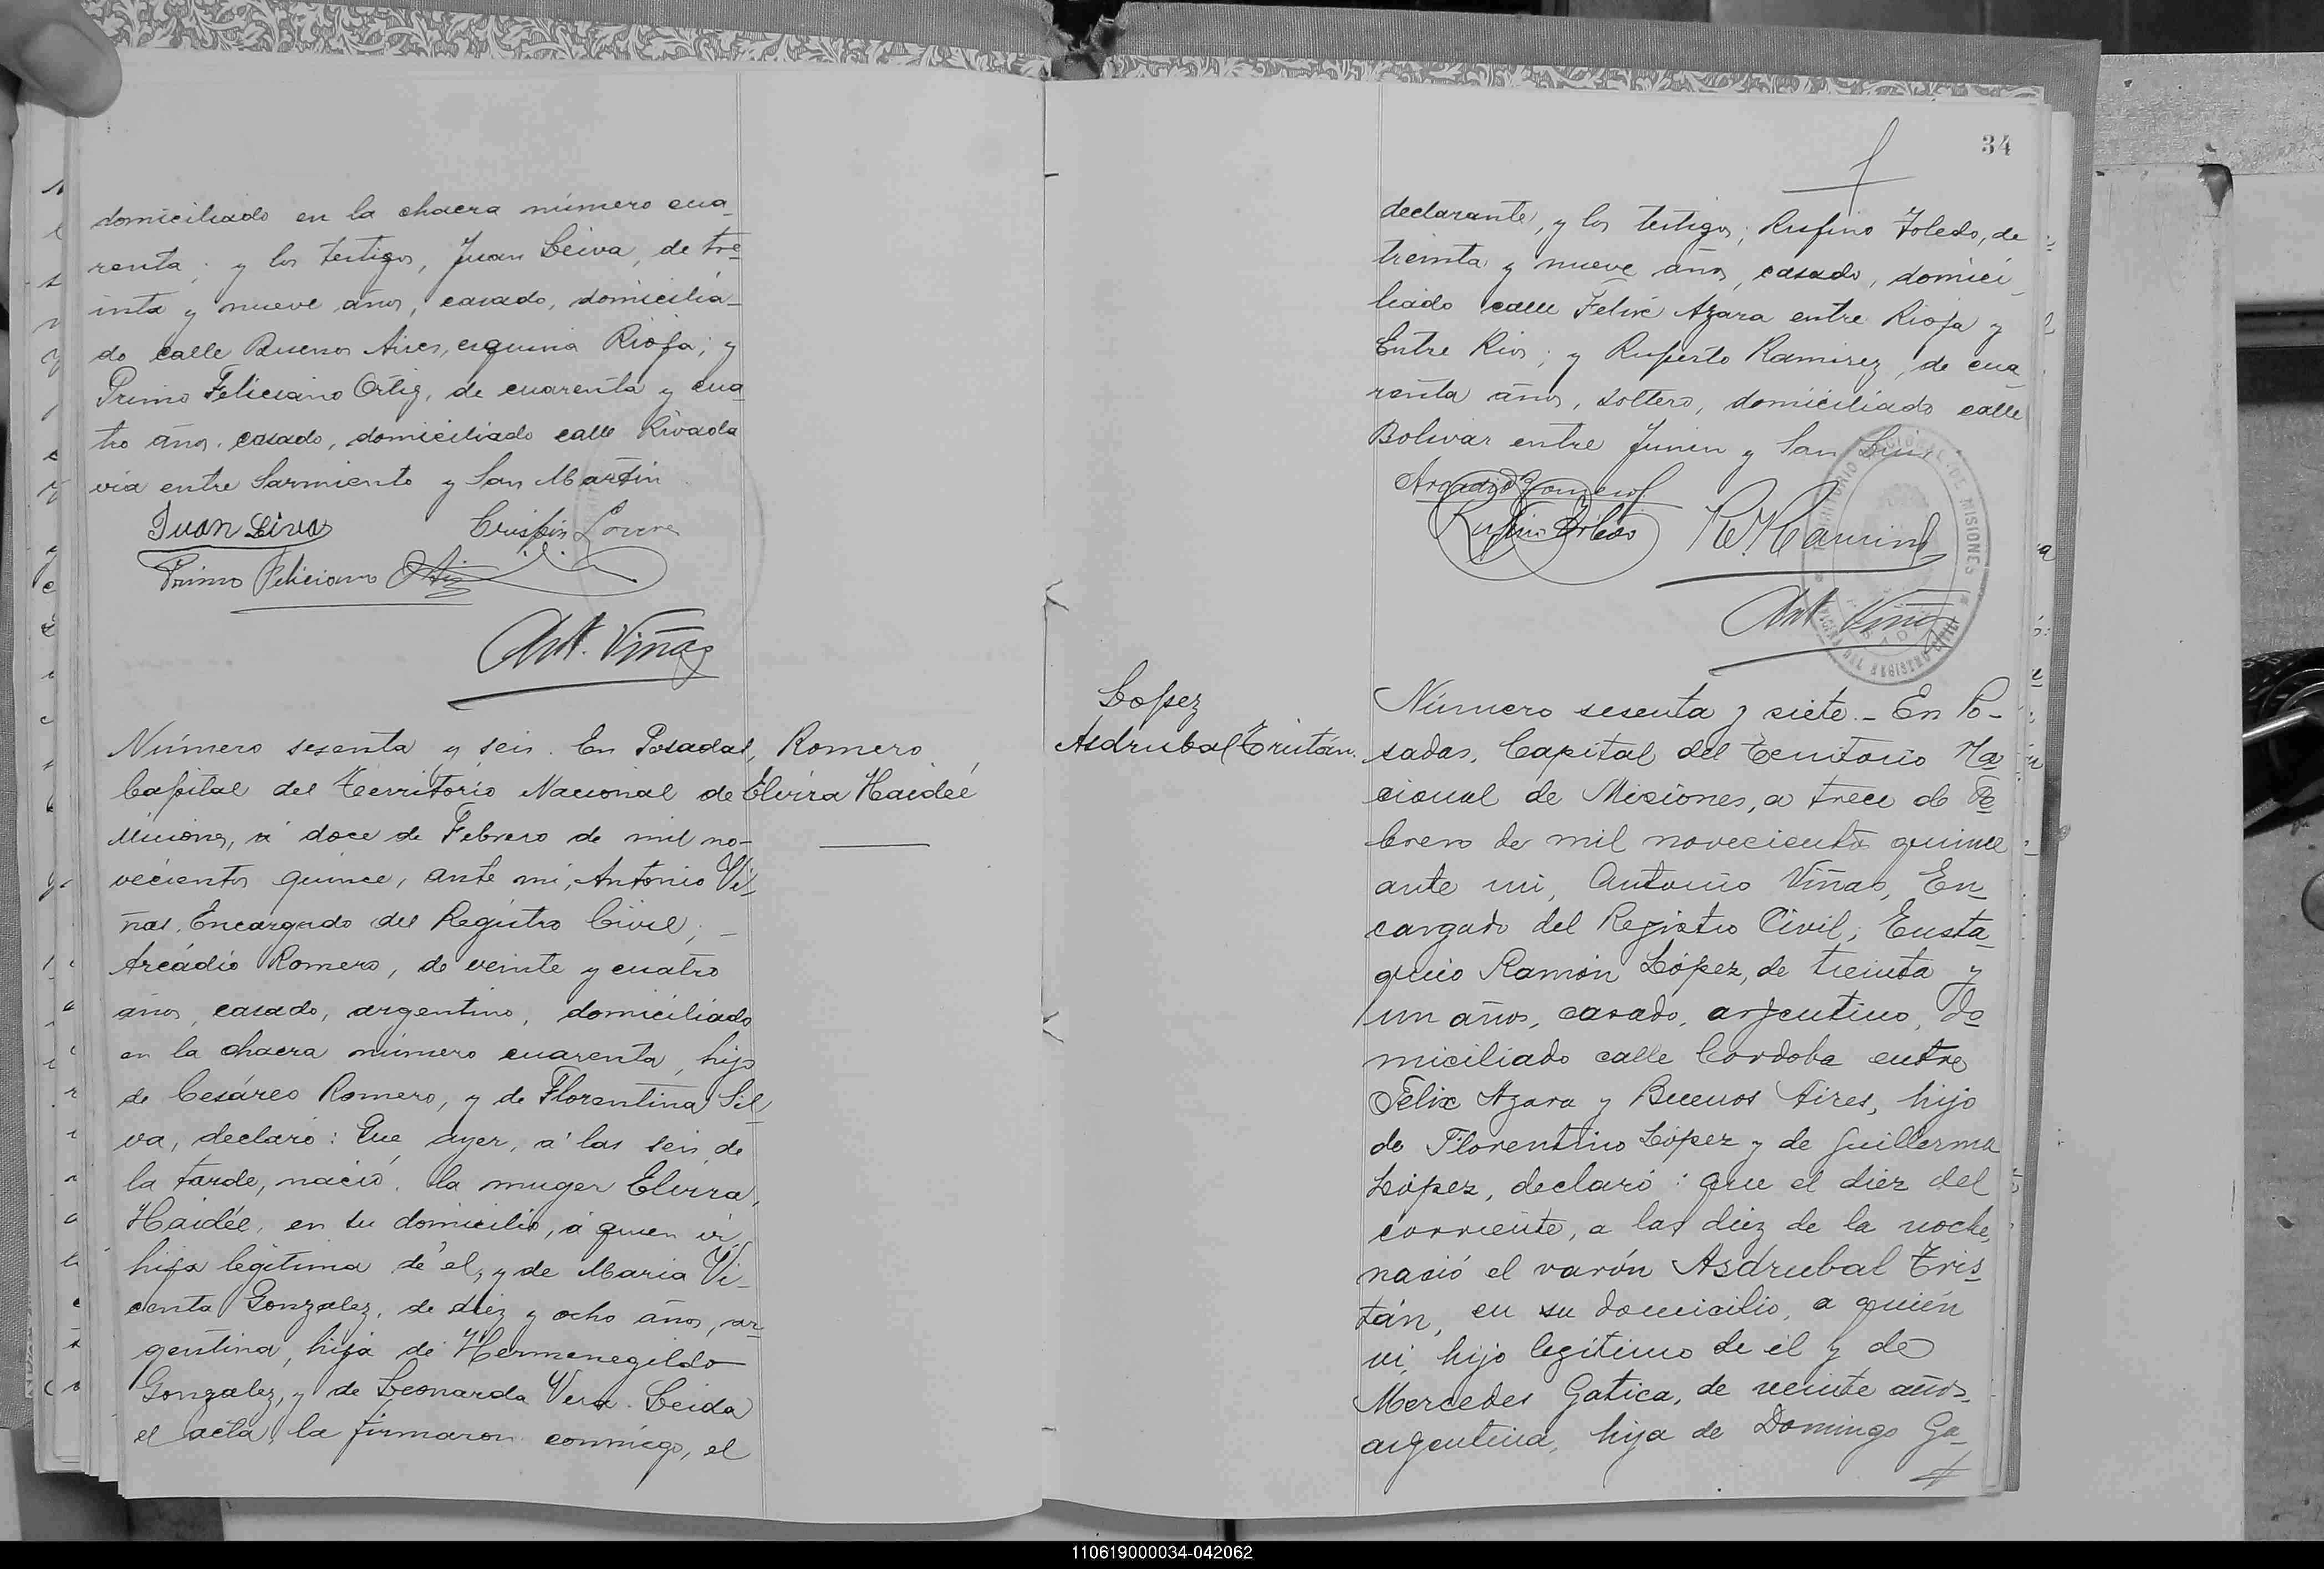 domiciliado en la chacra número cua-
renta; y los testigos, Juan Leiva, de tre-
inta y nueve años, casado, domicilia-
do calle Buenos Aires, esquina Rioja; y
Primo Feliciano Ortiz, de cuarenta y cua-
tro años, casado, domiciliado calle Rivada
via entre Sarmiento y San Martin
Juan Leiva Crispin
Primo Feliciano Ortiz
Ant. Viñas
Número sesenta y seis. En Posadas,
Capital del Territorio Nacional de
Misiones, á doce de Febrero de mil no-
vecientos quince, ante mi, Antonio Vi-
ñas, Encargado del Registro Civil; -
Arcadio Romero, de veinte y cuatro
años, casado, argentino, domiciliado
en la chacra número cuarenta, hijo
de Cesáreo Romero, y de Florentina Sil-
va, declaró: Que ayer, á las seis de
la tarde, nació la muger Elvira,
Haidée, en su domicilio, á quien ví,
hija legítima de él, y de Maria Vi-
centa Gonzalez, de diez y ocho años, ar-
gentina, hija de Hermenegildo
Gonzalez, y de Leonarda Vera. Leida
el acta, la firmaron conmigo, el
Romero
Elvira Haidée
34
declarante, y los testigos; Rufino Toledo, de
treinta y nueve años, casado, domici-
liado calle Felix Azara entre Rioja y
Entre Rios; y Ruperto Ramirez, de cua-
renta años, soltero, domiciliado calle
Bolivar entre Junin y San Luis
Arcadio Romero
Rufino Toledo
Ant. Viñas
TERRITORIO NACIONAL DE MISIONES
DEL REGISTRO CIVIL
Lopez
Asdrubal Tristán.
Número sesenta y siete. - En Po-
sadas, Capital del Territorio Na-
cional de Misiones, a trece de Fe-
brero de mil novecientos quince
ante mi, Antonio Viñas, En-
cargado del Registro Civil; Eusta-
quio Ramón López, de treinta y
un años, casado, argentino, do-
miciliado calle Cordoba entre
Felix Azara y Buenos Aires, hijo
de Florentino López y de Guillerma
López, declaró: que el diez del
corriente, a las diez de la noche,
nació el varón Asdrubal Tris-
tán, en su domicilio, a quién
ví, hijo legítimo de él y de
Mercedes Gatica, de veinte años,
argentina, hija de Domingo Ga-
110619000034-042062